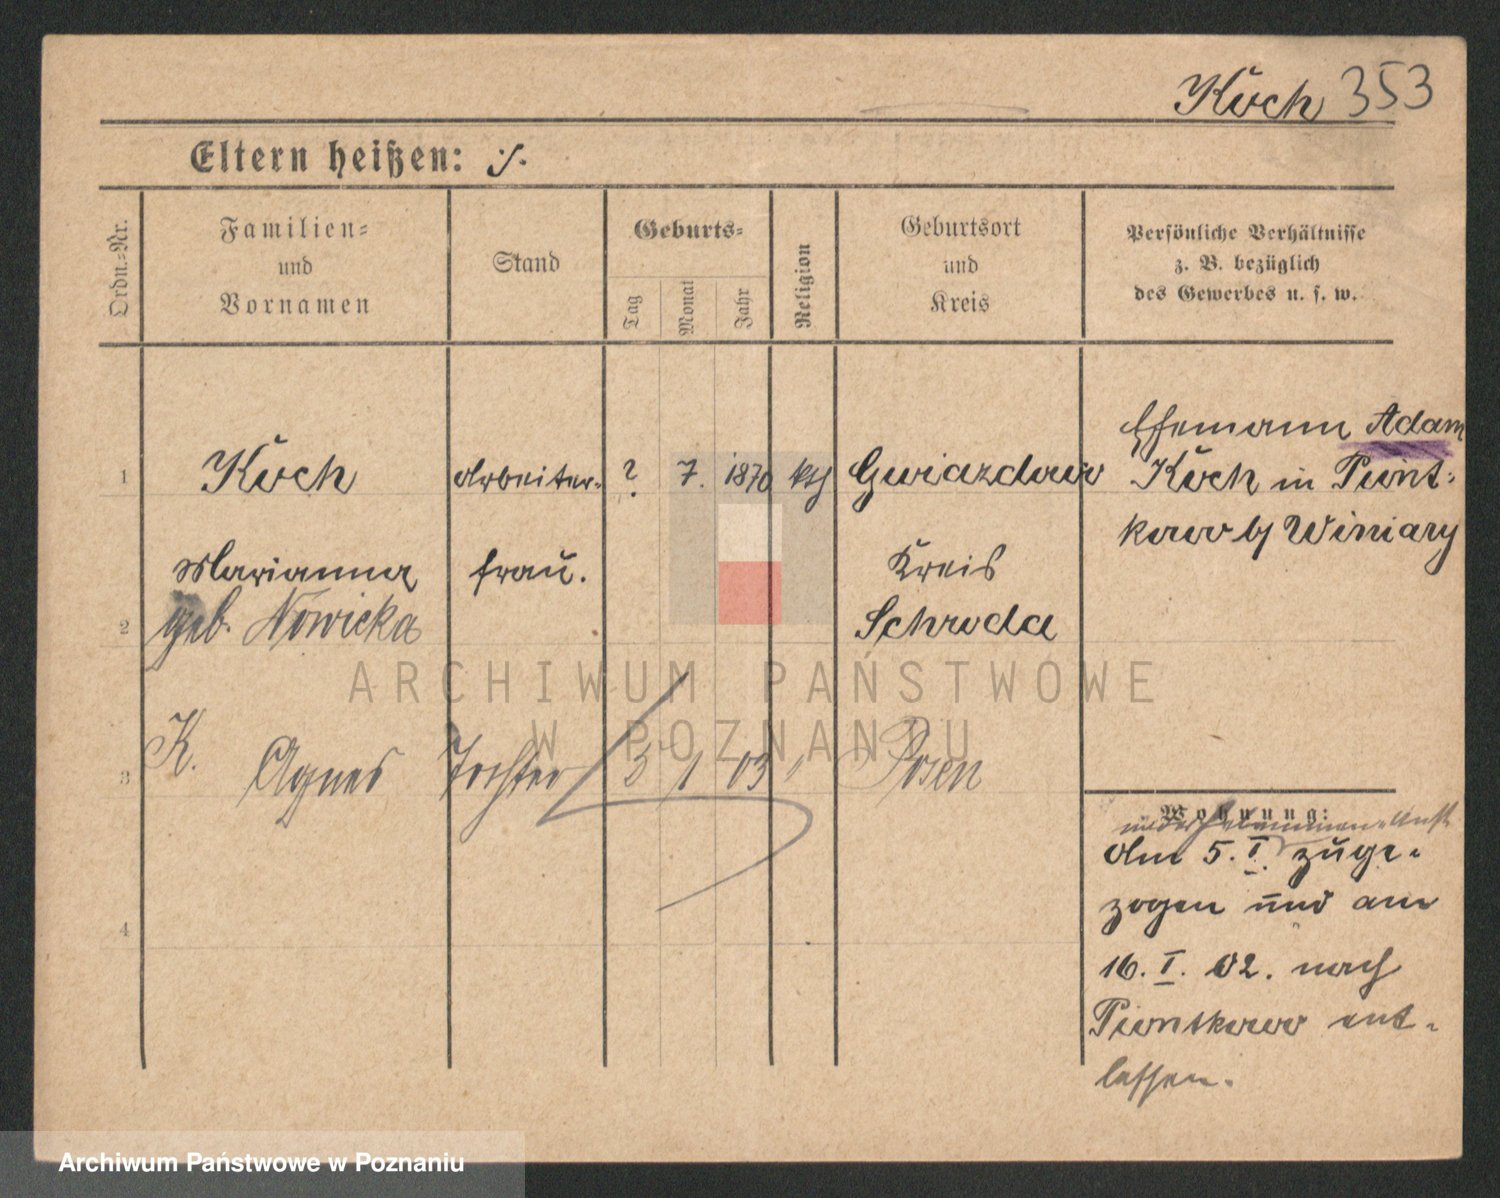 Koch 353
Eltern heißen: ./.
Ordn.-Nr.
Familien-
und
Vornamen
Stand
Geburts-
Tag
Monat
Jahr
Religion
Geburtsort
und
Kreis
Persönliche Verhältnisse
z. B. bezüglich
des Gewerbes u. s. w.
Ehemann Adam
1 Koch Arbeiter- ? 7. 1870 kth Gwiazdowo Koch in Piont-
kowo b/ Winiary
Marianna frau. Kreis
2 geb. Nowicka Schroda
ARCHIWUM PAŃSTWOWE
W POZNANIU
3 K. Agnes Tochter 3 1 03 Posen
Wohnung:
Am 5. I. zuge-
zogen und am
4
16. I. 02. nach
Piontkowo ent-
lassen.
Archiwum Państwowe w Poznaniu